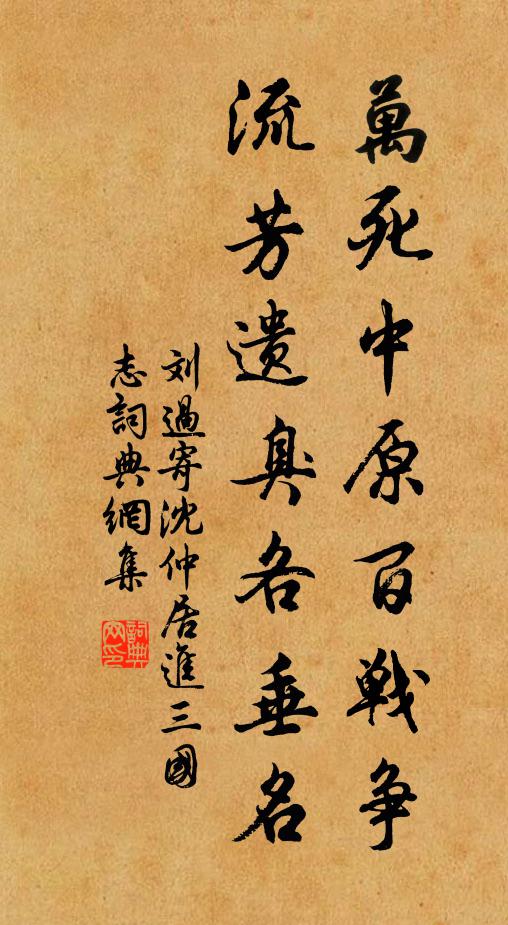 萬死中原百戰争
流芳遺臭各垂名
刘過寄沈仲居進三國
志詞典網集
詞典網印